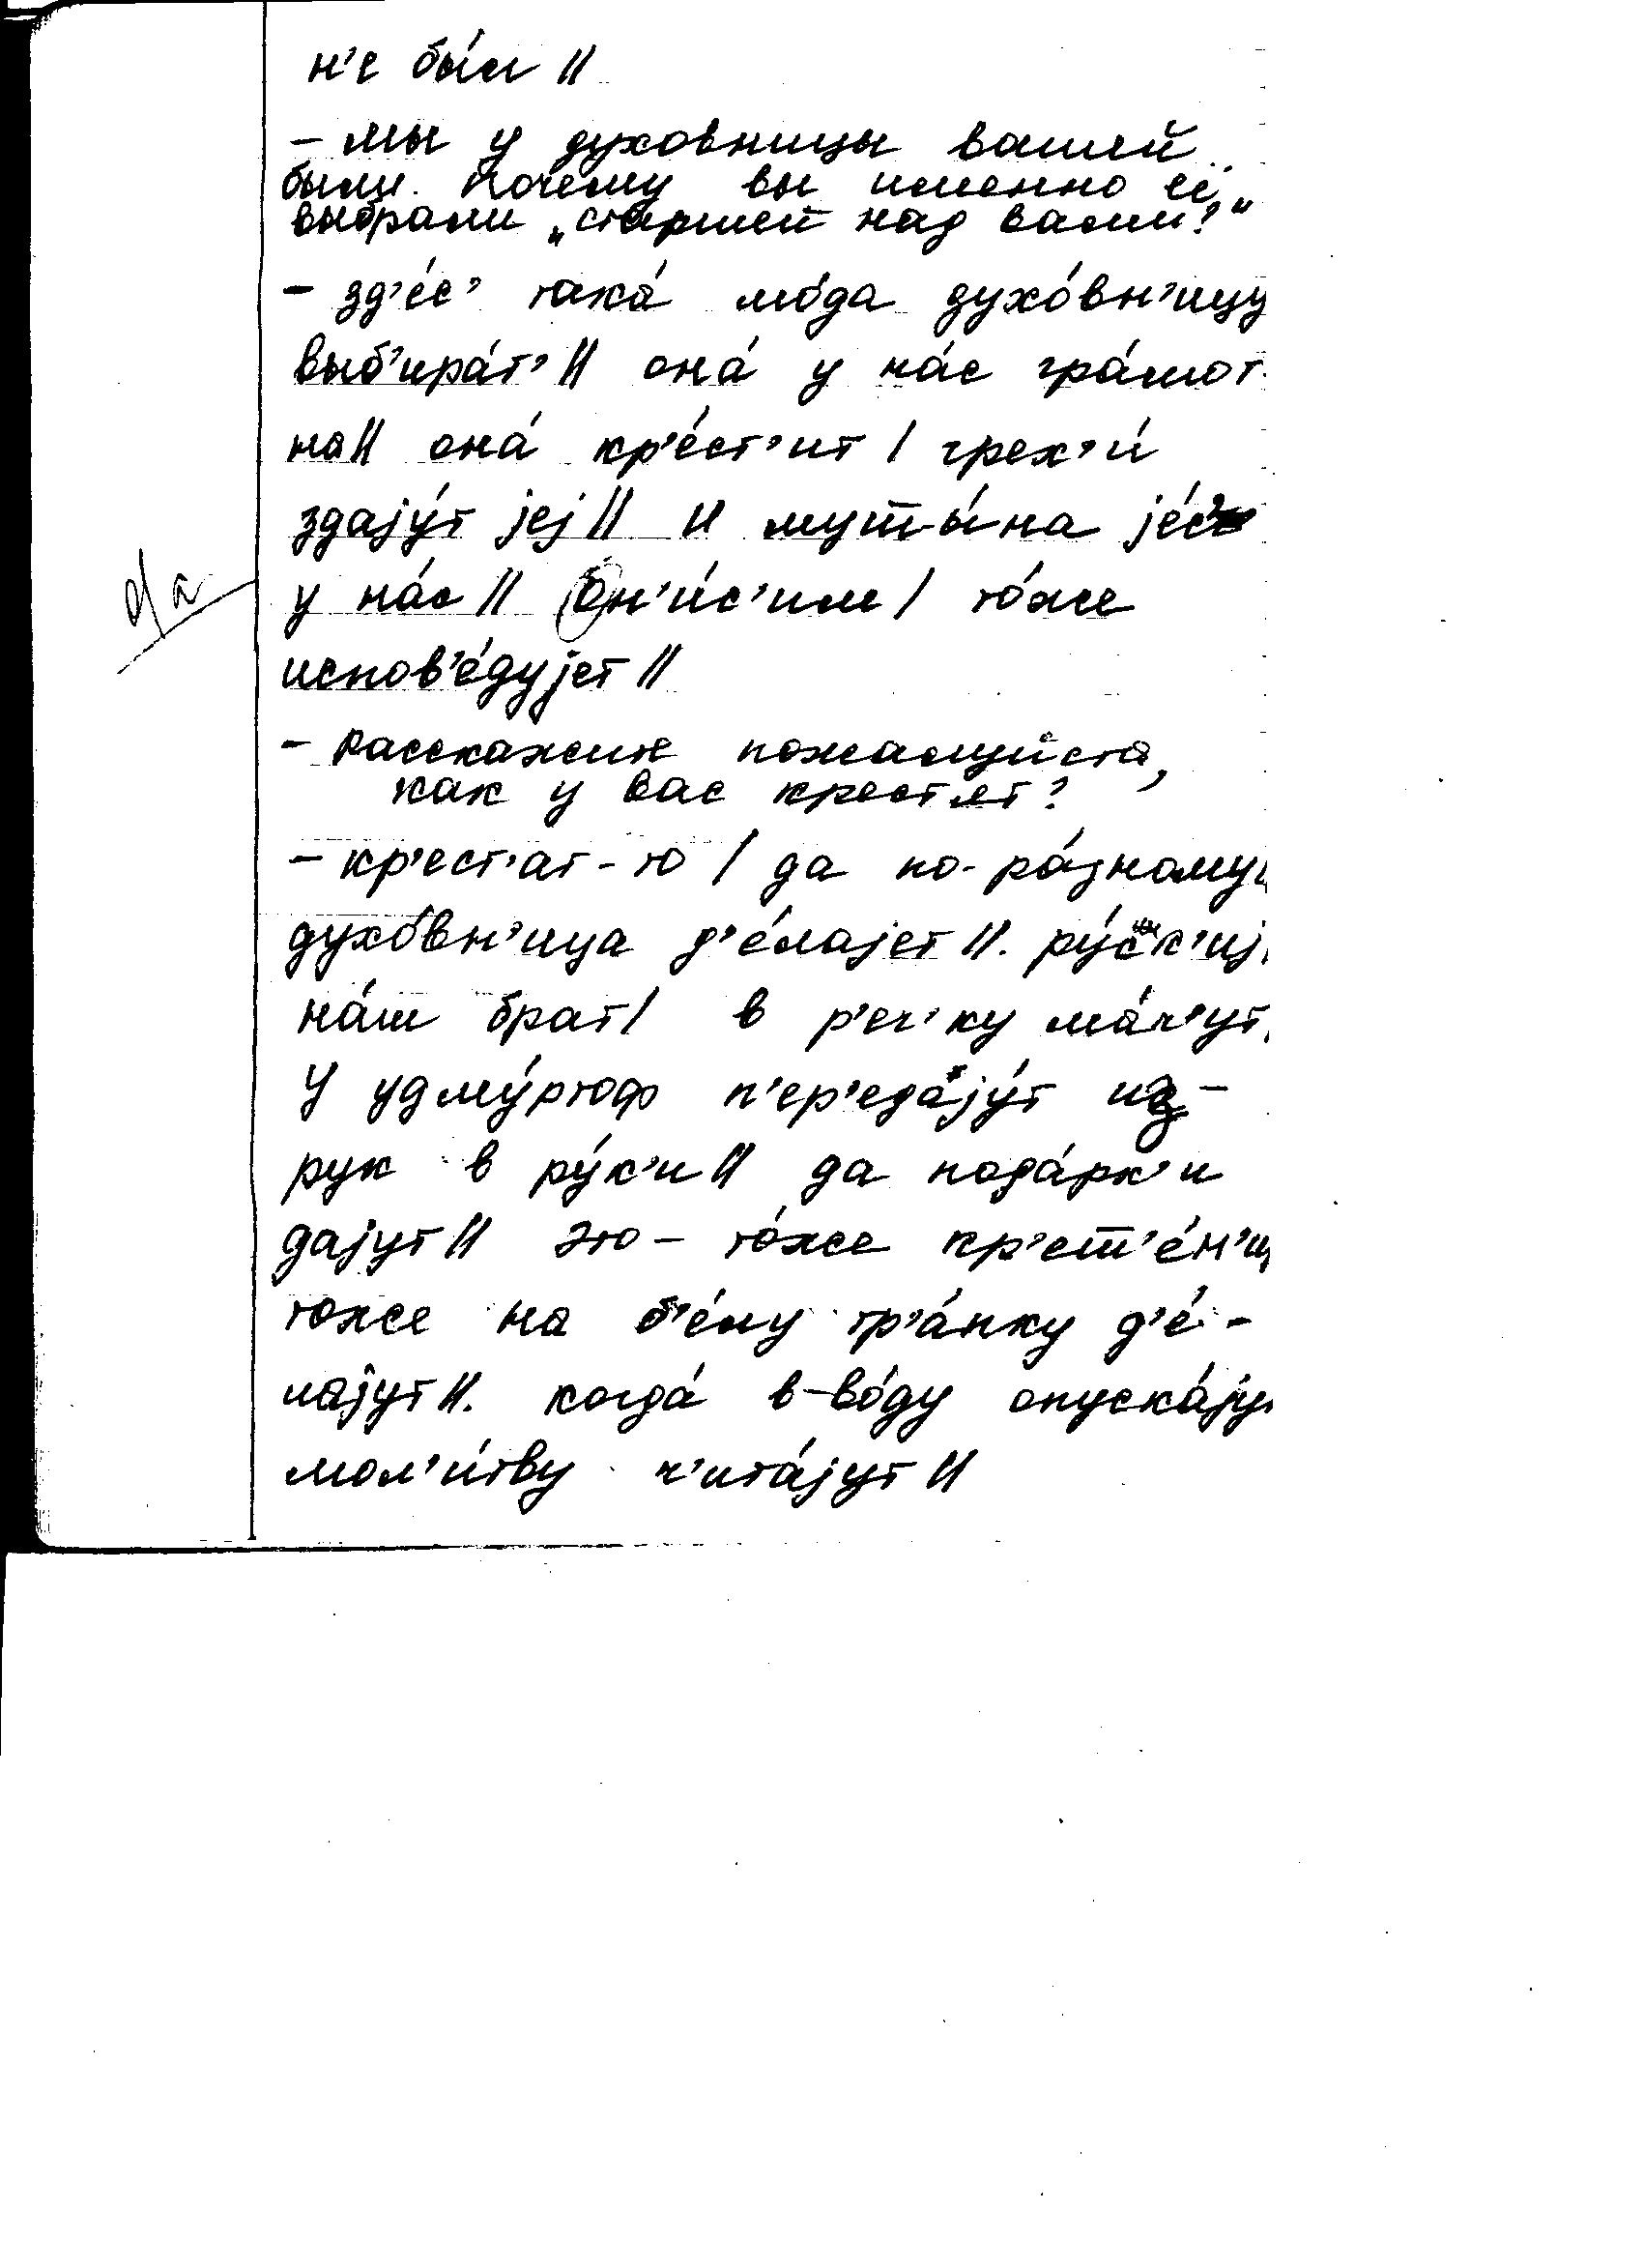 н'е бы́л //
– мы у духовницы вашей
были. Почему вы именно её
выбрали „старшей над вами?“
– зд'е́с' така́ мо́да духо́вн'ицу
выб'ира́т' // она́ у на́с гра́мот
на // она́ кр'е́ст'ит / грех'и́
здајýт јеј // и мущы́на је́с'
у на́с // Он'и́с'им / то́же
испов'е́дујет //
– Расскажите пожалуйста,
как у вас крестят?
– кр'ест'ат-то / да по-ра́зному
духо́вн'ица д'е́лајет //. ру́с к'иј
на́ш брат / в р'еч'ку ма́ч'ут
У удму́ртоф п'ер'едају́т из-
рук в ру́к'и // да пода́рк'и
дајут // Это – то́же кр'ещ'е́н'и
тоже на б'е́лу тр'а́пку д'е́-
лајут //. когда́ в–во́ду опуска́ју
мол'и́тву ч'ита́јут //